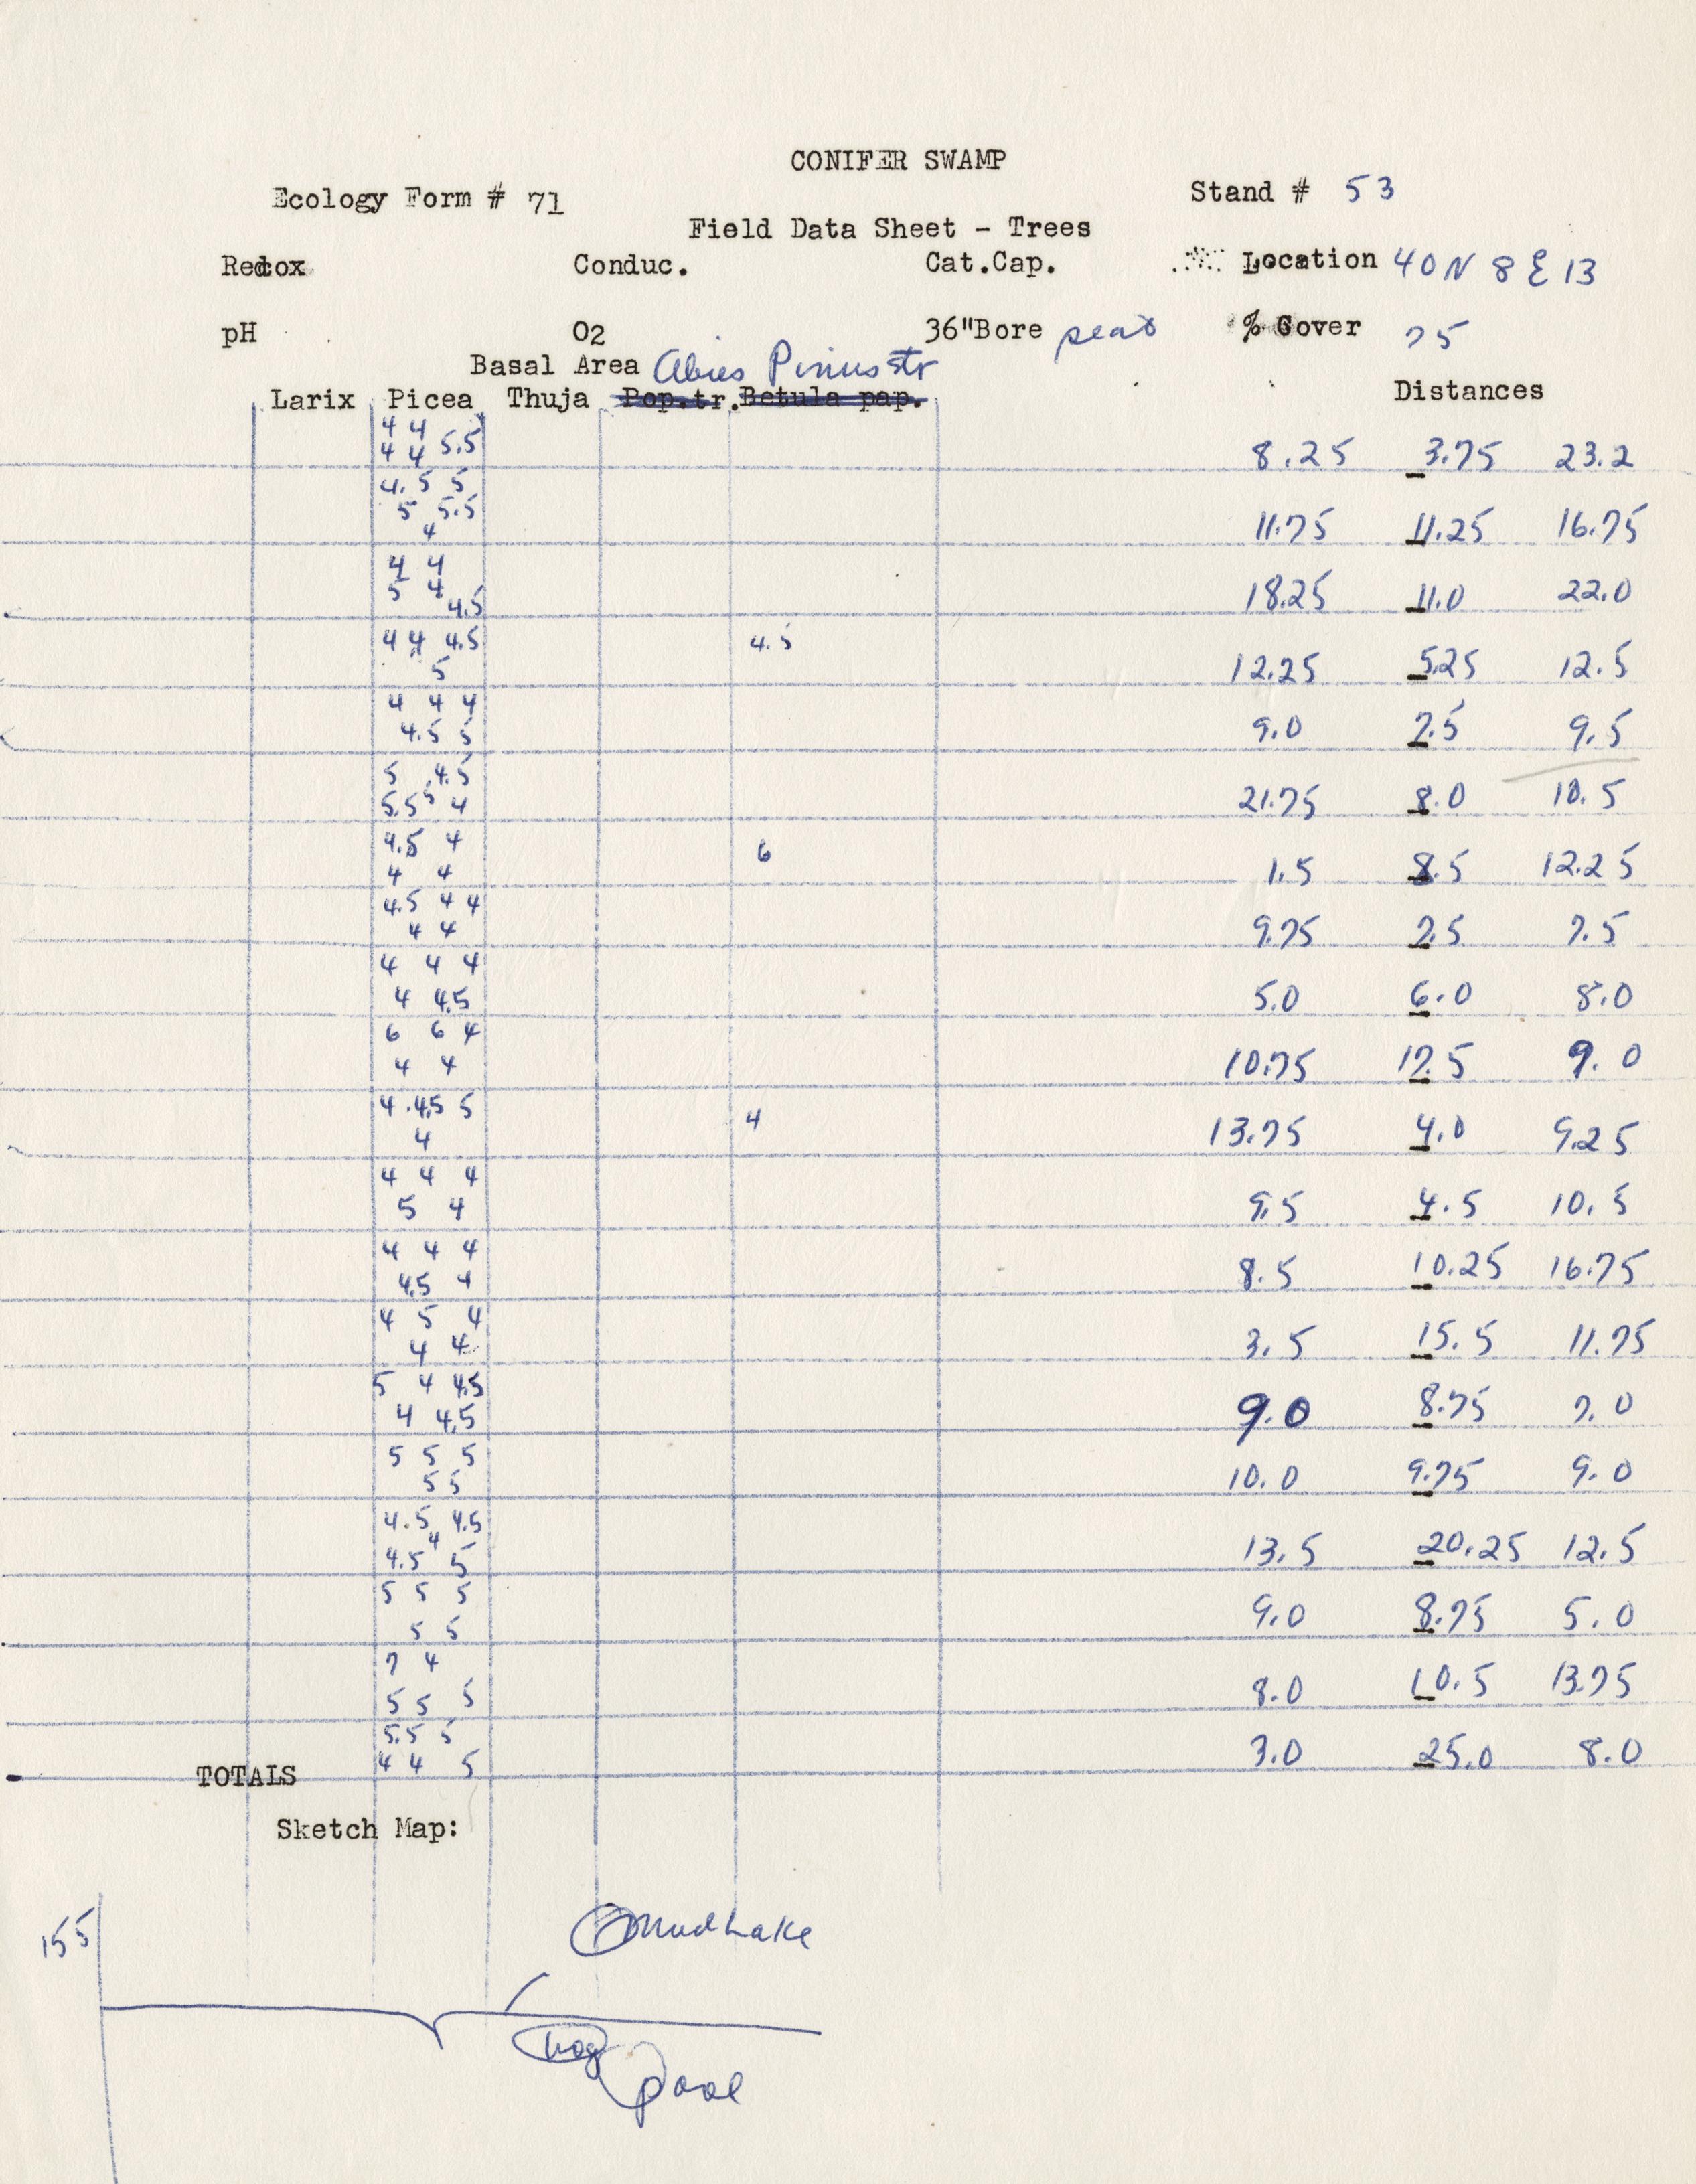 CONIFER SWAMP
Ecology Form # 71 Stand # 53
Field Data Sheet - Trees
Redox Conduc. Cat.Cap. Location 40N 8E 13
pH O2 36"Bore peat % Cover 75
Basal Area Abies Pinus str
Larix Picea Thuja Pop.tr. Betula pap. Distances
4 4
4 4 5.5 8.25 3.75 23.2
4.5 5
5 5.5
4 11.75 11.25 16.75
4 4
5 4
4.5 18.25 11.0 22.0
4 4 4.5 4.5
5 12.25 5.25 12.5
4 4 4
4.5 5 9.0 7.5 9.5
5 4.5
5.5 5 4 21.75 8.0 10.5
4.5 4 6
4 4 1.5 8.5 12.25
4.5 4 4
4 4 9.75 7.5 7.5
4 4 4
4 4.5 5.0 6.0 8.0
6 6 4
4 4 10.75 17.5 9.0
4 4.5 5 4
4 13.75 4.0 9.25
4 4 4
5 4 9.5 4.5 10.5
4 4 4
4.5 4 8.5 10.25 16.75
4 5 4
4 4 3.5 15.5 11.75
5 4 4.5
4 4.5 9.0 8.75 7.0
5 5 5
5 5 10.0 9.75 9.0
4.5 4.5
4
4.5 5 13.5 20.25 12.5
5 5 5
5 5 9.0 8.75 5.0
7 4
5 5 5 8.0 10.5 13.75
5.5 5
4 4 5 3.0 25.0 8.0
TOTALS
Sketch Map:
155 Mud Lake